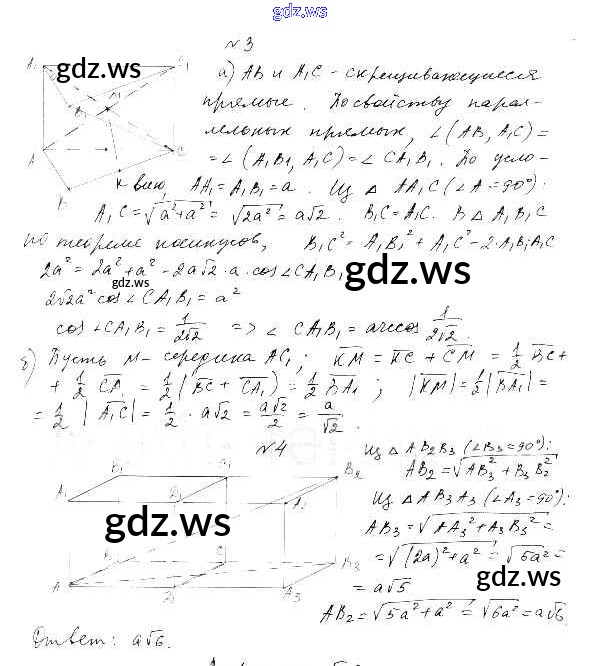 gdz.ws
№3
A₁ C₁ B₁ M A C K B
а) AB и A₁C – скрещивающиеся
прямые. По свойству парал-
лельных прямых, ∠(AB, A₁C) =
= ∠(A₁B₁, A₁C) = ∠CA₁B₁. По усло-
вию, AA₁ = A₁B₁ = a. Из △AA₁C (∠A = 90°):
A₁C = √a² + a² = √2a² = a√2. B₁C = A₁C. В △A₁B₁C
по теореме косинусов, B₁C² = A₁B₁² + A₁C² – 2·A₁B₁A₁C
2a² = 2a² + a² – 2a√2 · a · cos∠CA₁B₁
2√2a² cos∠CA₁B₁ = a²
cos∠CA₁B₁ = 1/2√2 => ∠CA₁B₁ = arccos 1/2√2.
б) Пусть M – середина AC₁; KM = KC + CM = 1/2 BC +
+ 1/2 CA₁ = 1/2 (BC + CA₁) = 1/2 BA₁; |KM| = 1/2 |BA₁| =
= 1/2 |A₁C| = 1/2 · a√2 = a√2/2 = a/√2.
№4
B₁ B₂ A₁ D₁ A₂ C B₃ A D A₃
Из △AB₂B₃ (∠B₃ = 90°):
AB₂ = √AB₃² + B₃B₂²
Из △AB₃A₃ (∠A₃ = 90°):
AB₃ = √AA₃² + A₃B₃² =
= √(2a)² + a² = √5a² =
= a√5
AB₂ = √5a² + a² = √6a² = a√6.
Ответ: a√6.
gdz.ws
gdz.ws
gdz.ws
gdz.ws
gdz.ws
gdz.ws